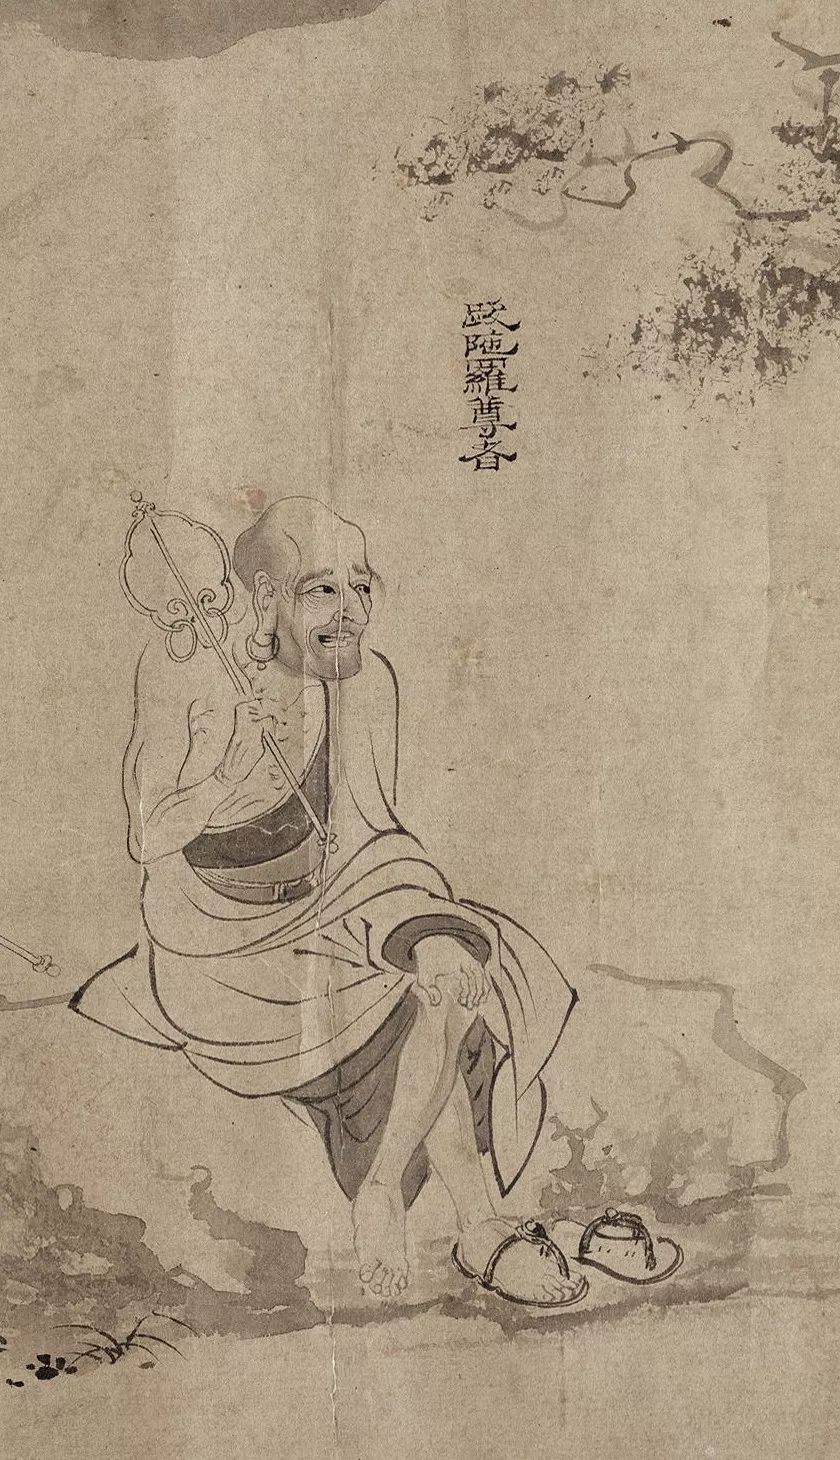 跋陁羅尊者